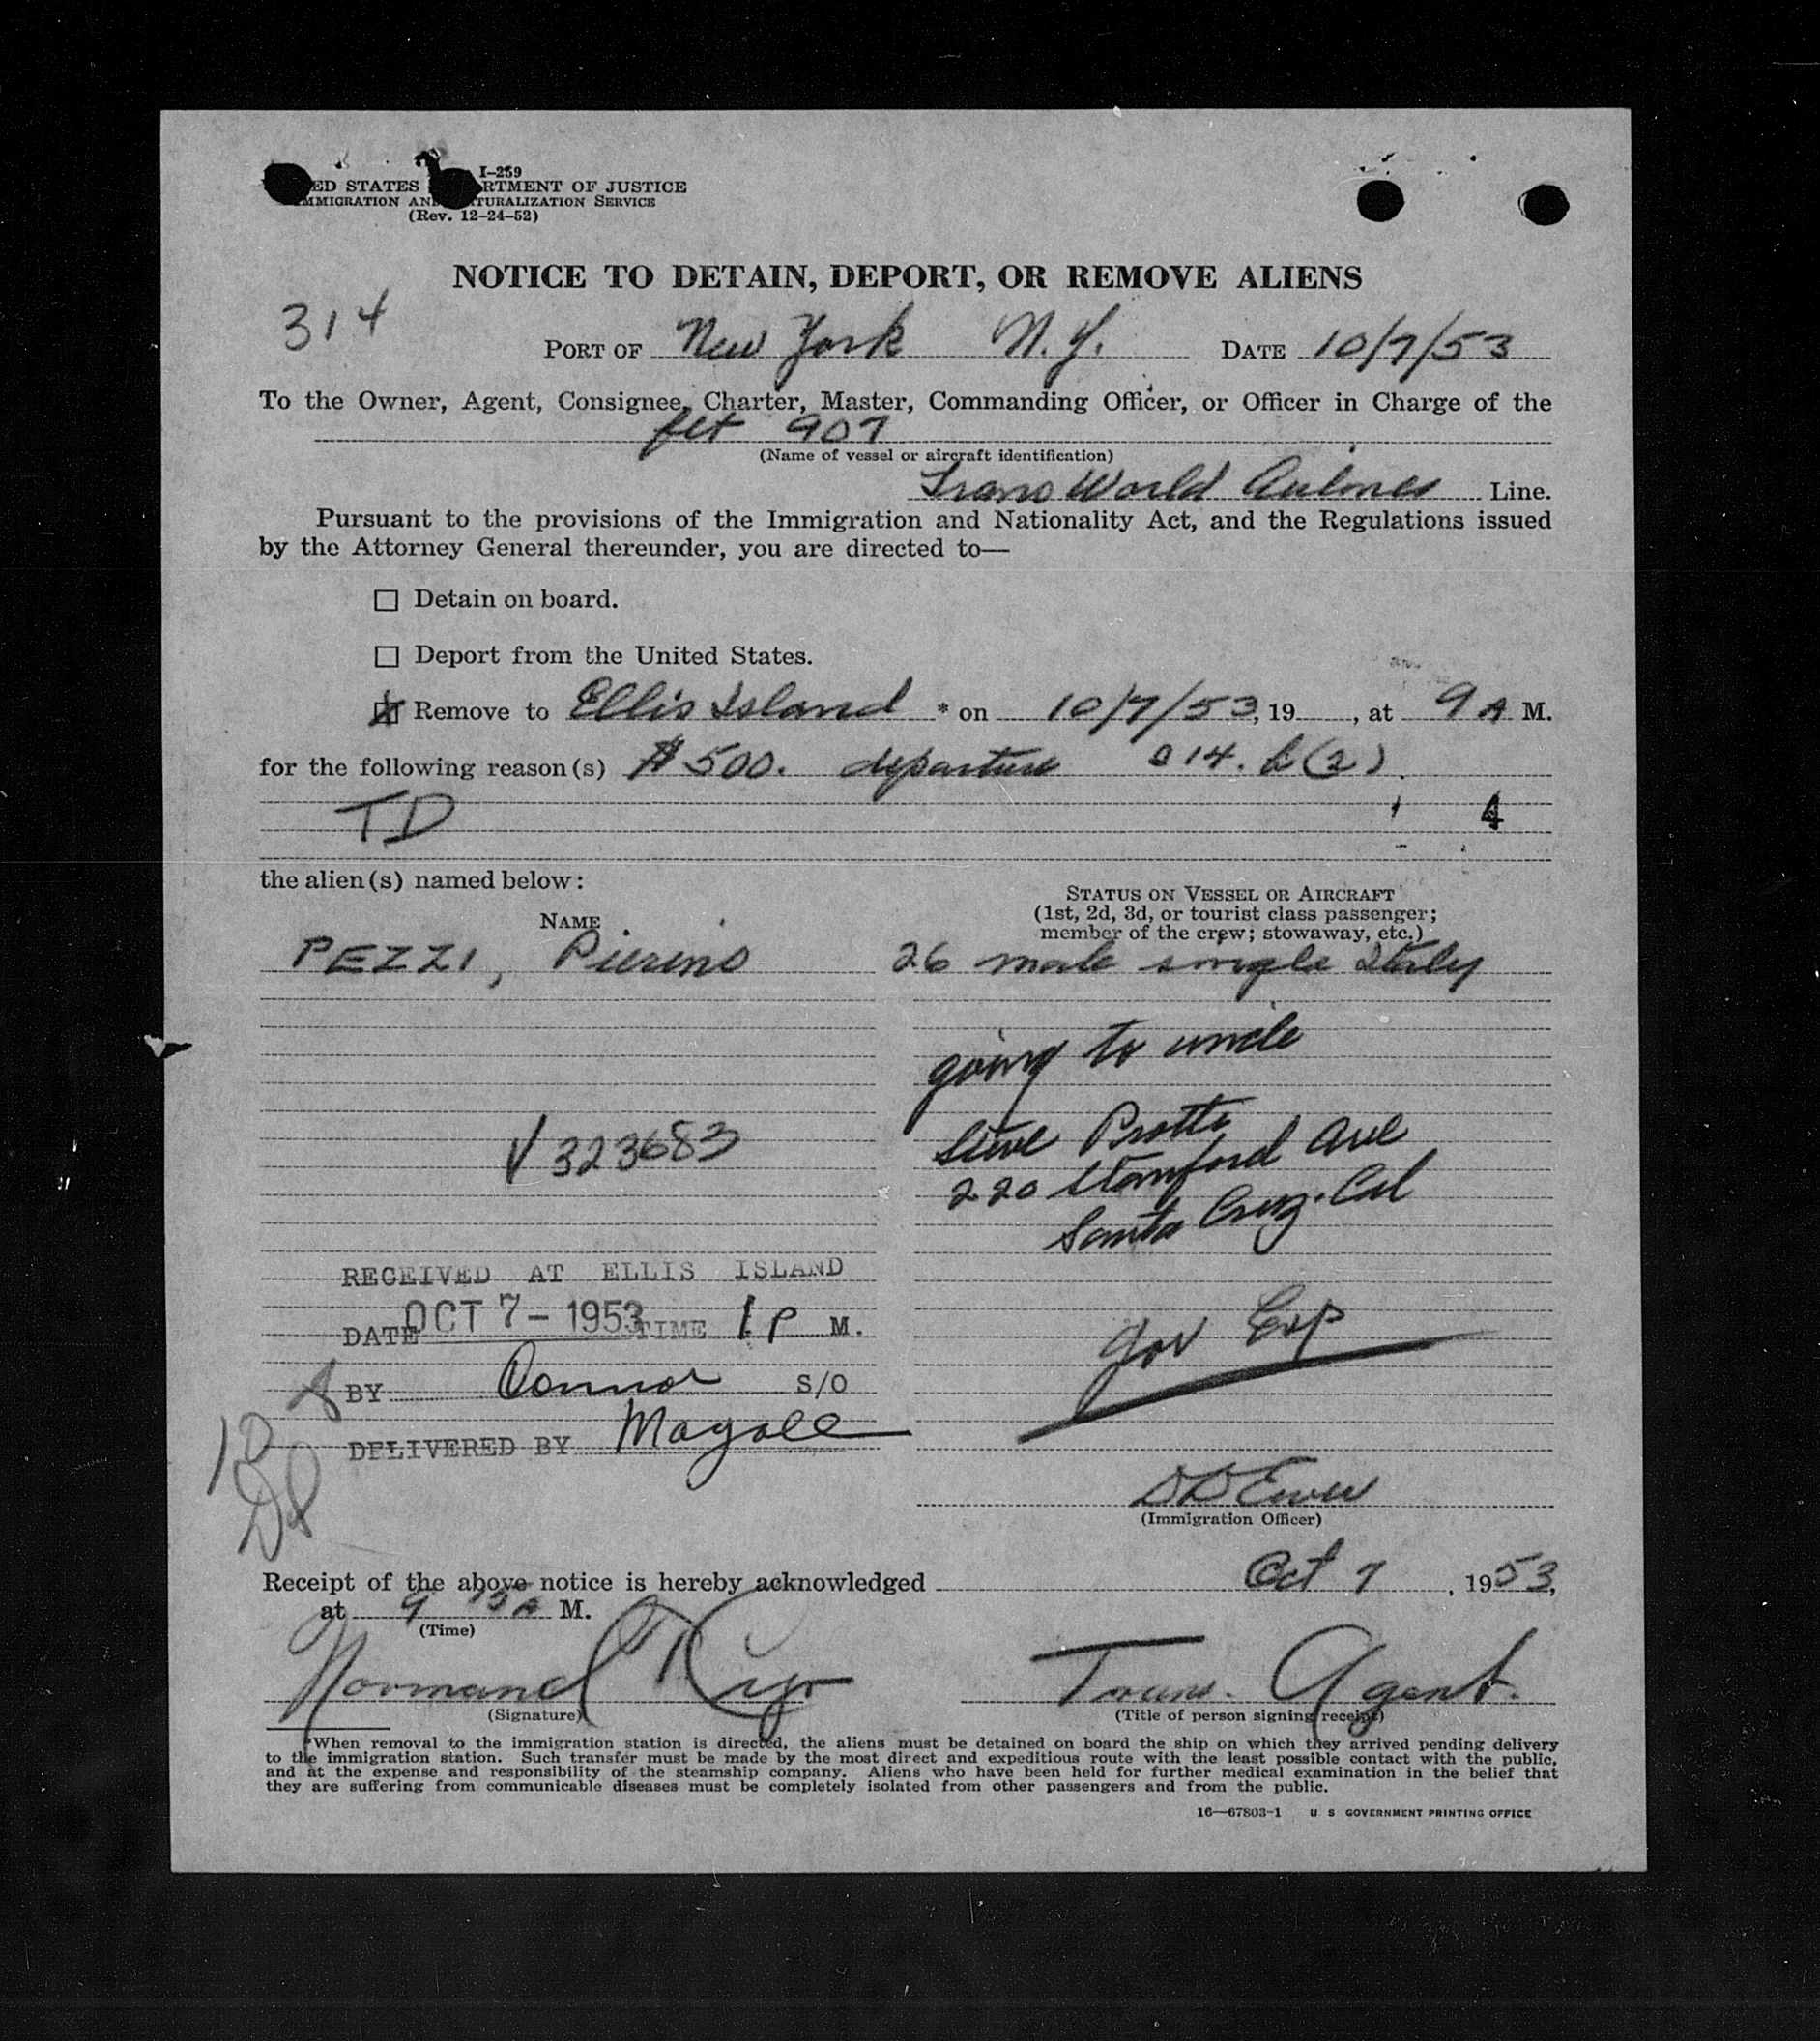 I-259
ED STATES RTMENT OF JUSTICE
MMIGRATION AND TURALIZATION SERVICE
(Rev. 12-24-52)
NOTICE TO DETAIN, DEPORT, OR REMOVE ALIENS
314
PORT OF New York N.Y. DATE 10/7/53
To the Owner, Agent, Consignee, Charter, Master, Commanding Officer, or Officer in Charge of the
flt 907
(Name of vessel or aircraft identification)
Trans World Airlines Line.
Pursuant to the provisions of the Immigration and Nationality Act, and the Regulations issued
by the Attorney General thereunder, you are directed to—
Detain on board.
Deport from the United States.
Remove to Ellis Island * on 10/7/53, 19 , at 9 A M.
for the following reason(s) $500. departure 214. k(2)
TD 4
the alien(s) named below:
STATUS ON VESSEL OR AIRCRAFT
(1st, 2d, 3d, or tourist class passenger;
member of the crew; stowaway, etc.)
NAME
PEZZI, Pierino 26 male single Italy
going to uncle
V 323683
220 Stanford Ave
Santa Cruz. Cal
RECEIVED AT ELLIS ISLAND
DATE OCT 7 - 1953 TIME 1 P M.
Gov Exp
BY Connor S/O
DELIVERED BY
(Immigration Officer)
Receipt of the above notice is hereby acknowledged Oct 7, 1953,
at 9 15 A M.
(Time)
Normand Trans. Agent.
(Signature) (Title of person signing receipt)
*When removal to the immigration station is directed, the aliens must be detained on board the ship on which they arrived pending delivery
to the immigration station. Such transfer must be made by the most direct and expeditious route with the least possible contact with the public,
and at the expense and responsibility of the steamship company. Aliens who have been held for further medical examination in the belief that
they are suffering from communicable diseases must be completely isolated from other passengers and from the public.
16—67803-1 U S GOVERNMENT PRINTING OFFICE